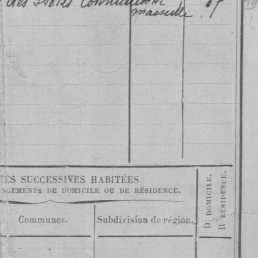 des
marseille
TÉS SUCCESSIVES HABITÉES
NGEMENTS DE DOMICILE OU DE RÉSIDENCE.
Communes.
Subdivision de région.
D. DOMICILE.
R. RÉSIDENCE.